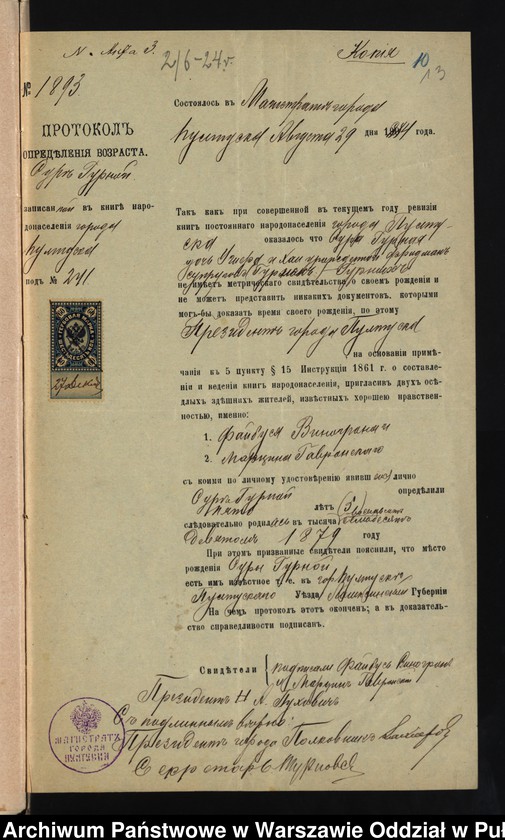 2/6-24 г.
Копія
10
13
№ 1893
ПРОТОКОЛЪ
ОПРЕДѢЛЕНІЯ ВОЗРАСТА.
Суры Гурной
записанной въ книгѣ наро-
донаселенія города
Пултуска
подъ № 241
Состоялось въ Магистратѣ города
Пултуска Августа 29 дня года.
Такъ какъ при совершенной въ текущемъ году ревизіи
книгъ постояннаго народонаселенія города Пулту-
ска оказалось что Сура Гурная
дочь
супруговъ Гурныхъ
не имѣетъ метрическаго свидѣтельства о своемъ рожденіи и
не можетъ представить никакихъ документовъ, которыми
могъ-бы доказать время своего рожденія, по этому
Президентъ города Пултуска
на основаніи примѣ-
чанія къ 5 пункту § 15 Инструкціи 1861 г. о составле-
ніи и веденіи книгъ народонаселенія, пригласивъ двухъ осѣ-
длыхъ здѣшнихъ жителей, извѣстныхъ хорошею нравствен-
ностью, именно:
1. Файбуся
2. Марцина Гавронскаго
съ коими по личному удостовѣренію явивш лично
Сурѣ Гурной опредѣлили
лѣтъ (5)
слѣдовательно родилась въ тысяча
девятомъ 1879 году
При этомъ призванные свидѣтели пояснили, что мѣсто
рожденія Суры Гурной
есть имъ извѣстное т. е. въ гор. Пултускѣ
Пултускаго Уѣзда Губерніи
На чемъ протоколъ этотъ оконченъ; а въ доказатель-
ство справедливости подписанъ.
Свидѣтели подписали Файбусь
Марцинъ
Президентъ
Съ подлиннымъ вѣрно:
Президентъ города Полковникъ
Секретарь
МАГИСТРАТЪ
ГОРОДА
ПУЛТУСКА
Archiwum Państwowe w Warszawie Oddział w Puł